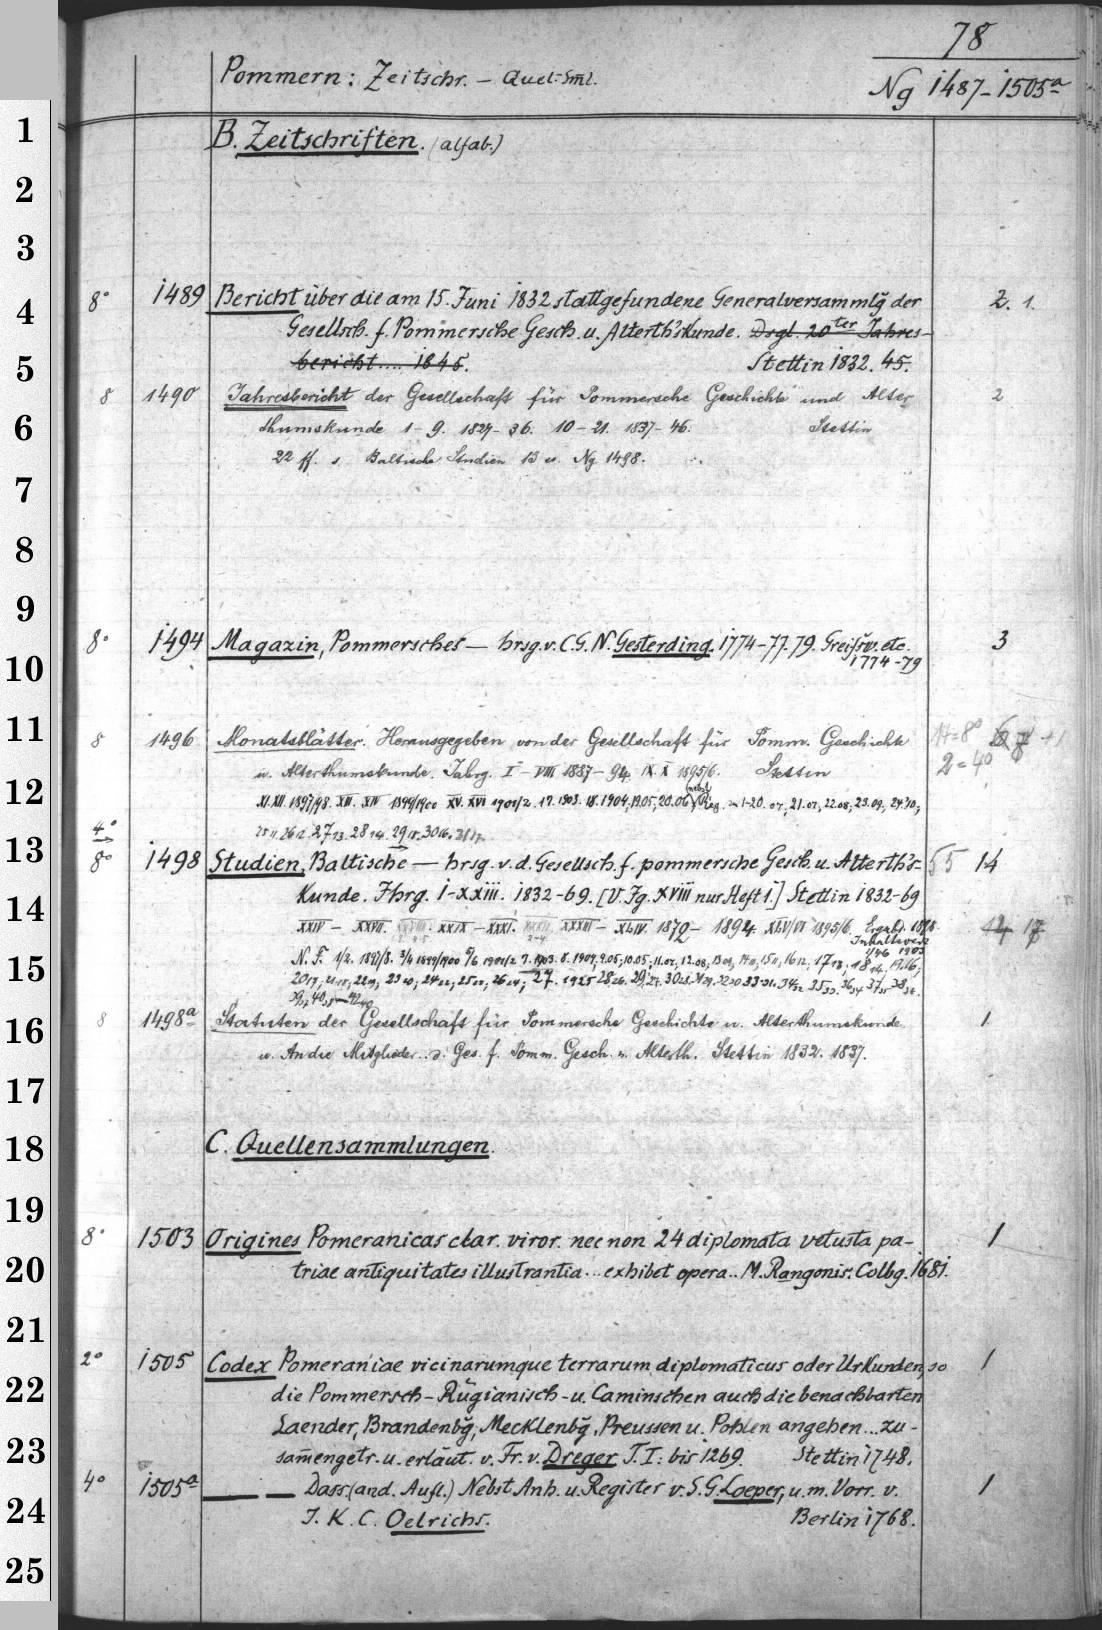 78
Pommern: Zeitschr. – Quel-Sml.
Ng 1487–1505a
B. Zeitschriften. (alfab.)
8° 1489 Bericht über die am 15. Juni 1832 stattgefundene Generalversammlg der 2. 1.
Gesellsch. f. Pommersche Gesch. u. Alterth'skunde. Dsgl. 20ter Jahres-
bericht.... 1845. Stettin 1832. 45.
8 1490 Jahresbericht der Gesellschaft für Pommersche Geschichte und Alter 2
thumskunde 1–9. 1827–36. 10–21. 1837–46. Stettin
22 ff. s. Baltische Studien 13 u. Ng 1498.
8° 1494 Magazin, Pommersches — hrsg. v. C. G. N. Gesterding. 1774–77. 79. Greifsw. etc. 3
1774–79
8 1496 Monatsblätter. Herausgegeben von der Gesellschaft für Pomm. Geschichte 17=8°
u. Alterthumskunde. Jahrg. I – VIII 1887–94. IX. X 1895/6. Stettin 2=4°
XI. XII. 1897/98. XIII. XIV 1899/1900 XV. XVI 1901/2. 17. 1903. 18. 1904, 19.05, 20.06 (nebst Reg. 1-20. 07, 21.07, 22.08, 23.09, 24.10,
25 11. 26 12. 27 13. 28 14. 29 15. 30 16. 31 17.
4°
8° 1498 Studien, Baltische — hrsg. v. d. Gesellsch. f. pommersche Gesch. u. Alterth's- 55 14
Kunde. Jhrg. I–XXIII. 1832–69. [V. Jg. XVIII nur Heft 1.] Stettin 1832–69
XXIV – XXVII. XXVIII. XXIX – XXXI. XXXII. XXXIII – XLIV. 1872 – 1894. XLV/VI 1895/6. Ergbd. 1898 14 17
Inhaltsverz
1/46 1903
N. F. 1/2. 1897/8. 3/4 1899/1900 5/6 1901/2 7. 1903. 8. 1904, 9.05, 10.05, 11.07, 12.08, 13 09, 14 10, 15 11, 16 12, 17 13, 18 14, 19 16,
20 17, 21 18, 22 19, 23 20, 24 22, 25 22, 26 24, 27. 1925 28 26. 29 27. 30 28. 31 29. 32 30 33 31. 34 32 35 33. 36 34 37 35 38 36.
39 37 40 38 – 42 40
8 1498a Statuten der Gesellschaft für Pommersche Geschichte u. Alterthumskunde 1
u. An die Mitglieder .. d. Ges. f. Pomm. Gesch. u. Alterth. Stettin 1832. 1837.
C. Quellensammlungen.
8° 1503 Origines Pomeranicas clar. viror. nec non 24 diplomata vetusta pa- 1
triae antiquitates illustrantia... exhibet opera.. M. Rangonis. Colbg. 1681.
2° 1505 Codex Pomeraniae vicinarumque terrarum diplomaticus oder Urkunden, so 1
die Pommersch-Rügianisch- u. Caminschen auch die benachbarten
Laender, Brandenbg, Mecklenbg, Preussen u. Pohlen angehen... zu-
sam̄engetr. u. erläut. v. Fr. v. Dreger T. I: bis 1269. Stettin 1748.
4° 1505a — — Dass. (and. Aufl.) Nebst Anh. u. Register v. S. G. Loeper, u. m. Vorr. v. 1
J. K. C. Oelrichs. Berlin 1768.
1
2
3
4
5
6
7
8
9
10
11
12
13
14
15
16
17
18
19
20
21
22
23
24
25